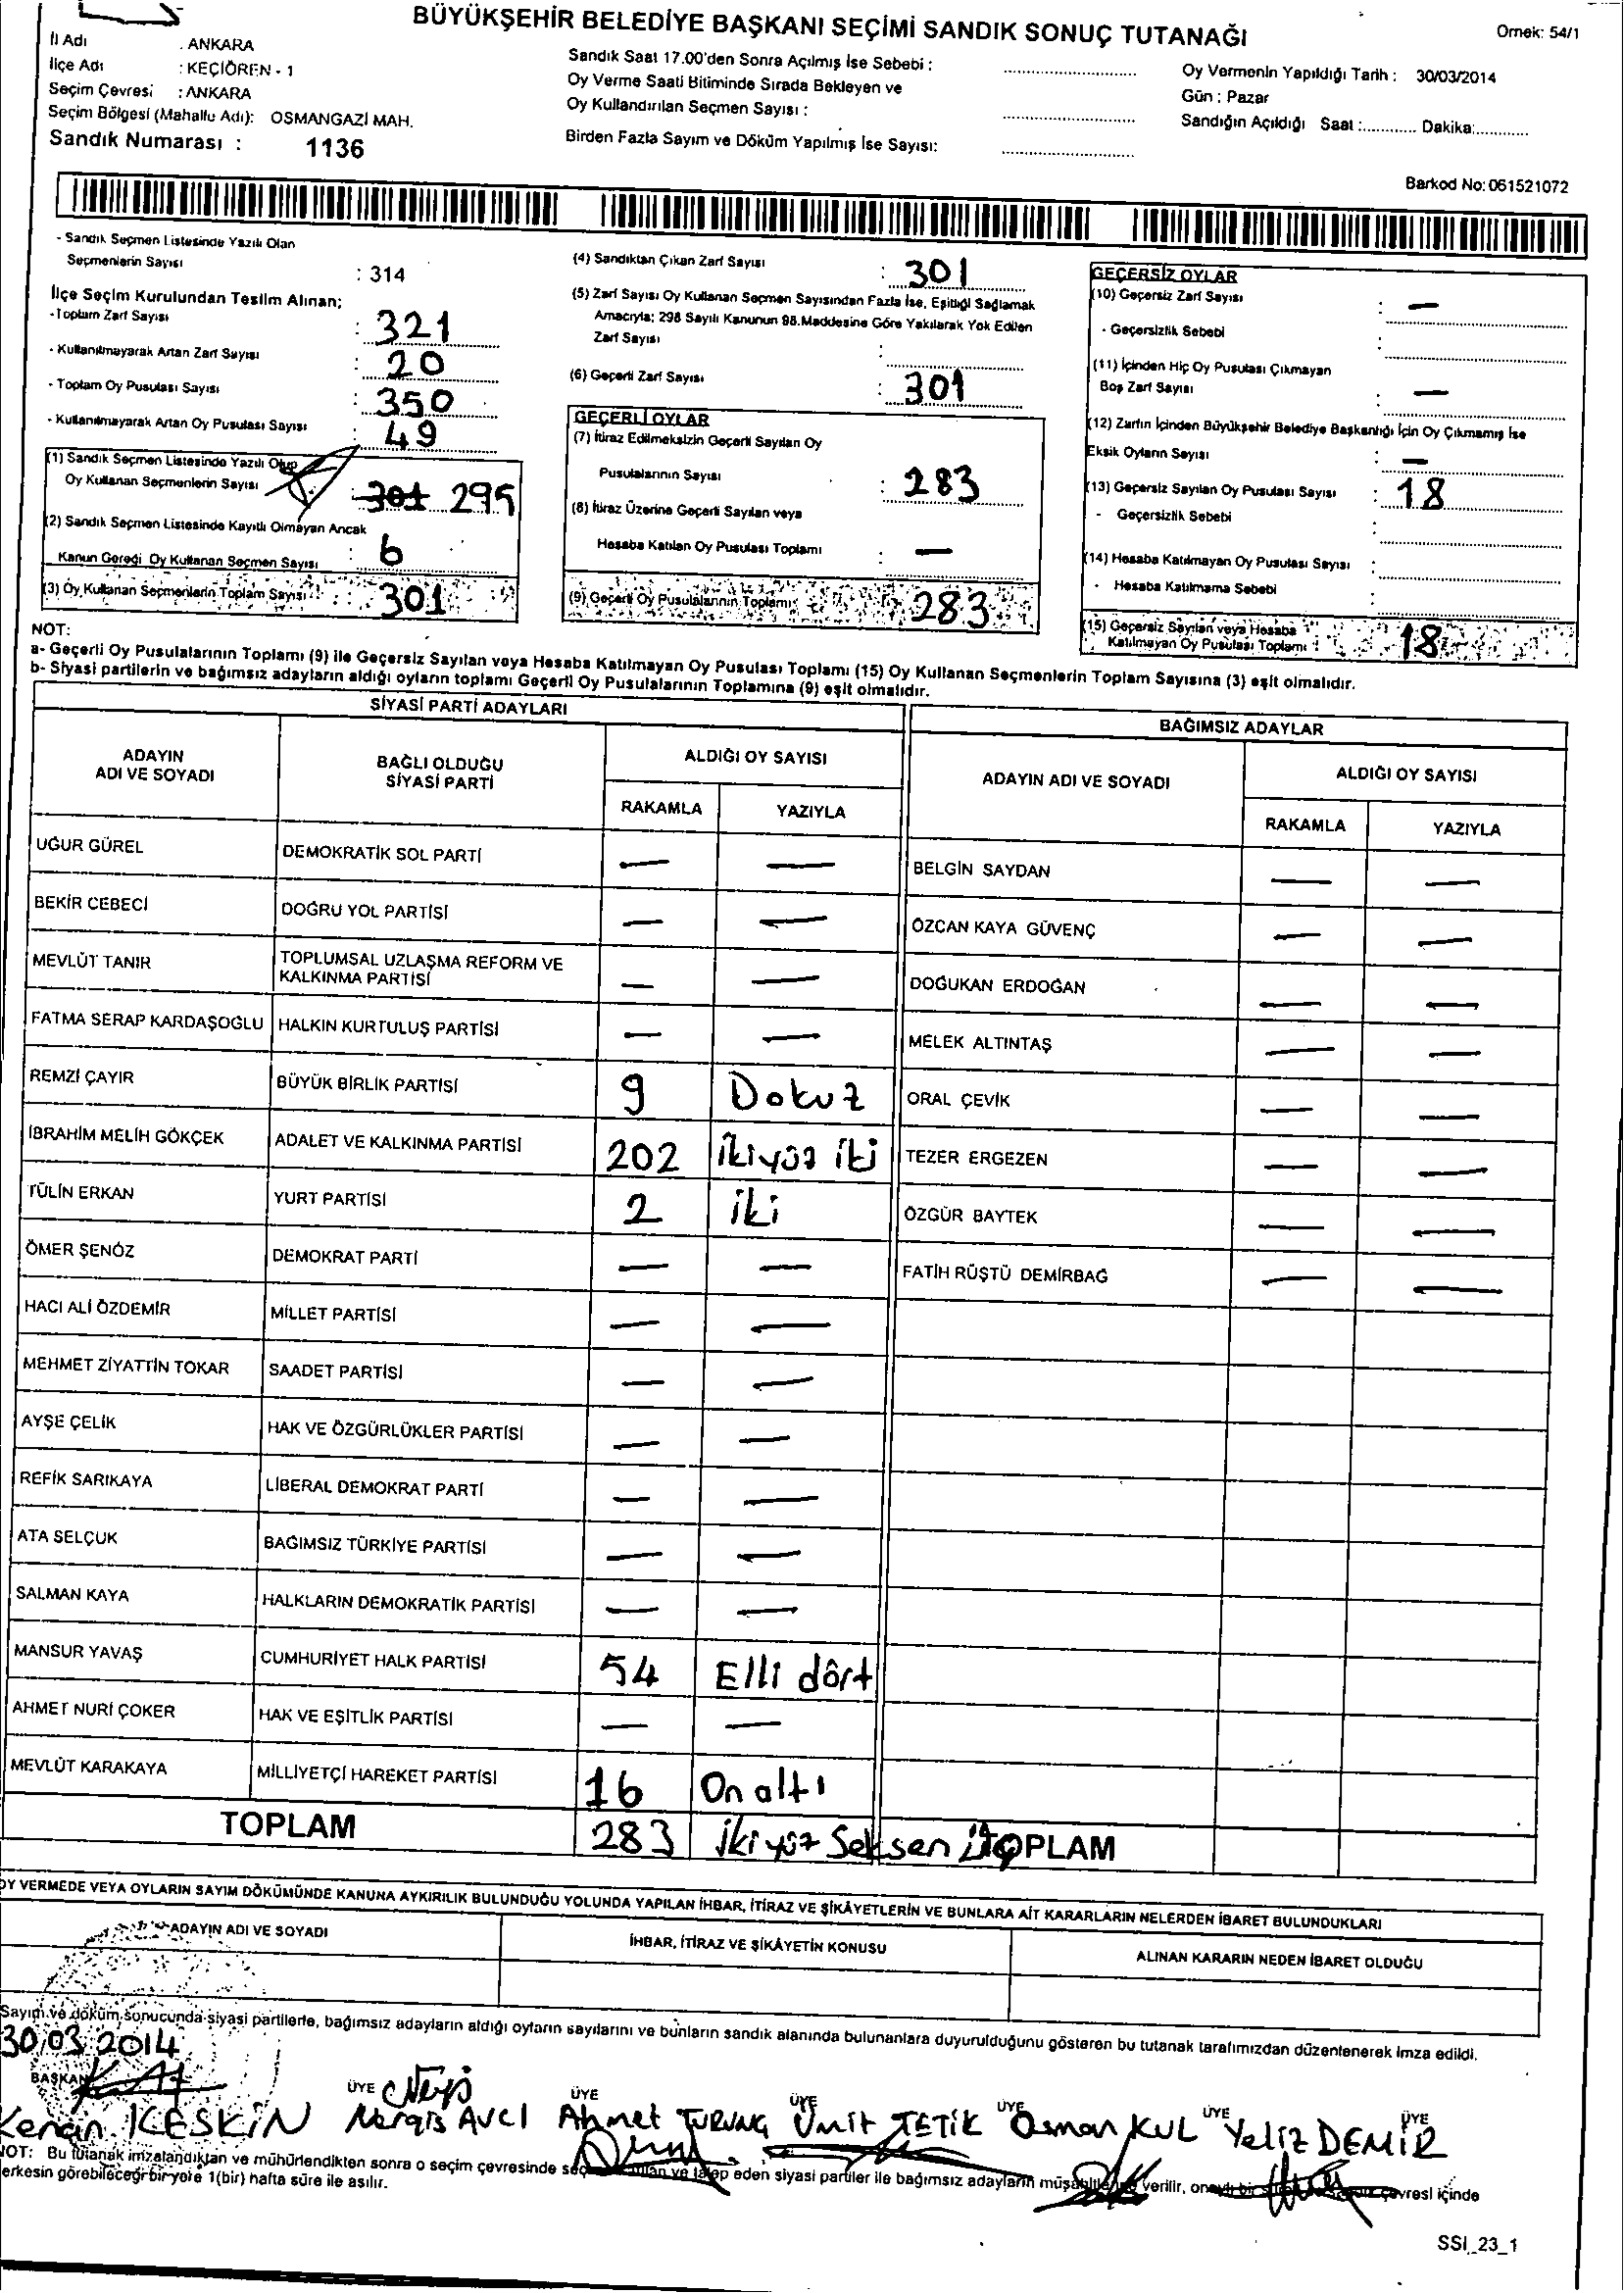 BÜYÜKŞEHİR BELEDİYE BAŞKANI SEÇİMİ SANDIK SONUÇ TUTANAĞI
Ornek: 54/1
İl Adı : ANKARA
İlçe Adı : KEÇİÖREN - 1
Seçim Çevresi : ANKARA
Seçim Bölgesi (Mahalle Adı): OSMANGAZİ MAH.
Sandık Numarası : 1136
Sandık Saat 17.00'den Sonra Açılmış İse Sebebi :
Oy Verme Saati Bitiminde Sırada Bekleyen ve
Oy Kullandırılan Seçmen Sayısı :
Birden Fazla Sayım ve Döküm Yapılmış İse Sayısı:
Oy Vermenin Yapıldığı Tarih : 30/03/2014
Gün : Pazar
Sandığın Açıldığı Saat :............ Dakika:............
Barkod No: 061521072
- Sandık Seçmen Listesinde Yazılı Olan
Seçmenlerin Sayısı : 314
İlçe Seçim Kurulundan Teslim Alınan;
- Toplam Zarf Sayısı : 321
- Kullanılmayarak Artan Zarf Sayısı : 20
- Toplam Oy Pusulası Sayısı : 350
- Kullanılmayarak Artan Oy Pusulası Sayısı : 49
(1) Sandık Seçmen Listesinde Yazılı Olup
Oy Kullanan Seçmenlerin Sayısı 301 295
(2) Sandık Seçmen Listesinde Kayıtlı Olmayan Ancak
Kanun Gereği Oy Kullanan Seçmen Sayısı : 6
(3) Oy Kullanan Seçmenlerin Toplam Sayısı : 301
(4) Sandıktan Çıkan Zarf Sayısı : 301
(5) Zarf Sayısı Oy Kullanan Seçmen Sayısından Fazla İse, Eşitliği Sağlamak
Amacıyla; 298 Sayılı Kanunun 98.Maddesine Göre Yakılarak Yok Edilen
Zarf Sayısı :
(6) Geçerli Zarf Sayısı : 301
GEÇERLİ OYLAR
(7) İtiraz Edilmeksizin Geçerli Sayılan Oy
Pusulalarının Sayısı : 283
(8) İtiraz Üzerine Geçerli Sayılan veya
Hesaba Katılan Oy Pusulası Toplamı : —
(9) Geçerli Oy Pusulalarının Toplamı : 283
GEÇERSİZ OYLAR
(10) Geçersiz Zarf Sayısı : —
- Geçersizlik Sebebi :
(11) İçinden Hiç Oy Pusulası Çıkmayan
Boş Zarf Sayısı : —
(12) Zarfın İçinden Büyükşehir Belediye Başkanlığı İçin Oy Çıkmamış İse
Eksik Oyların Sayısı : —
(13) Geçersiz Sayılan Oy Pusulası Sayısı : 18
- Geçersizlik Sebebi :
(14) Hesaba Katılmayan Oy Pusulası Sayısı :
- Hesaba Katılmama Sebebi :
(15) Geçersiz Sayılan veya Hesaba
Katılmayan Oy Pusulası Toplamı : 18
NOT:
a- Geçerli Oy Pusulalarının Toplamı (9) ile Geçersiz Sayılan veya Hesaba Katılmayan Oy Pusulası Toplamı (15) Oy Kullanan Seçmenlerin Toplam Sayısına (3) eşit olmalıdır.
b- Siyasi partilerin ve bağımsız adayların aldığı oyların toplamı Geçerli Oy Pusulalarının Toplamına (9) eşit olmalıdır.
SİYASİ PARTİ ADAYLARI
ADAYIN ADI VE SOYADI BAĞLI OLDUĞU SİYASİ PARTİ ALDIĞI OY SAYISI
RAKAMLA YAZIYLA
UĞUR GÜREL DEMOKRATİK SOL PARTİ — —
BEKİR CEBECİ DOĞRU YOL PARTİSİ — —
MEVLÜT TANIR TOPLUMSAL UZLAŞMA REFORM VE KALKINMA PARTİSİ — —
FATMA SERAP KARDAŞOĞLU HALKIN KURTULUŞ PARTİSİ — —
REMZİ ÇAYIR BÜYÜK BİRLİK PARTİSİ 9 Dokuz
İBRAHİM MELİH GÖKÇEK ADALET VE KALKINMA PARTİSİ 202 İkiyüz iki
TÜLİN ERKAN YURT PARTİSİ 2 iki
ÖMER ŞENÖZ DEMOKRAT PARTİ — —
HACI ALİ ÖZDEMİR MİLLET PARTİSİ — —
MEHMET ZİYATTİN TOKAR SAADET PARTİSİ — —
AYŞE ÇELİK HAK VE ÖZGÜRLÜKLER PARTİSİ — —
REFİK SARIKAYA LİBERAL DEMOKRAT PARTİ — —
ATA SELÇUK BAĞIMSIZ TÜRKİYE PARTİSİ — —
SALMAN KAYA HALKLARIN DEMOKRATİK PARTİSİ — —
MANSUR YAVAŞ CUMHURİYET HALK PARTİSİ 54 Elli dört
AHMET NURİ ÇOKER HAK VE EŞİTLİK PARTİSİ — —
MEVLÜT KARAKAYA MİLLİYETÇİ HAREKET PARTİSİ 16 On altı
TOPLAM 283 İkiyüz Seksen üç
BAĞIMSIZ ADAYLAR
ADAYIN ADI VE SOYADI ALDIĞI OY SAYISI
RAKAMLA YAZIYLA
BELGİN SAYDAN — —
ÖZCAN KAYA GÜVENÇ — —
DOĞUKAN ERDOĞAN — —
MELEK ALTINTAŞ — —
ORAL ÇEVİK — —
TEZER ERGEZEN — —
ÖZGÜR BAYTEK — —
FATİH RÜŞTÜ DEMİRBAĞ — —
TOPLAM
OY VERMEDE VEYA OYLARIN SAYIM DÖKÜMÜNDE KANUNA AYKIRILIK BULUNDUĞU YOLUNDA YAPILAN İHBAR, İTİRAZ VE ŞİKÂYETLERİN VE BUNLARA AİT KARARLARIN NELERDEN İBARET BULUNDUKLARI
ADAYIN ADI VE SOYADI İHBAR, İTİRAZ VE ŞİKÂYETİN KONUSU ALINAN KARARIN NEDEN İBARET OLDUĞU
Sayım ve döküm sonucunda siyasi partilerle, bağımsız adayların aldığı oyların sayılarını ve bunların sandık alanında bulunanlara duyurulduğunu gösteren bu tutanak tarafımızdan düzenlenerek imza edildi.
30/03/2014
BAŞKAN ÜYE ÜYE ÜYE ÜYE ÜYE ÜYE
Kenan KESKİN Nergis AVCI Ahmet Ümit TETİK Osman KUL Yeliz DEMİR
NOT: Bu tutanak imzalandıktan ve mühürlendikten sonra o seçim çevresinde ve talep eden siyasi partiler ile bağımsız adayların verilir, çevresi içinde
erkesin görebileceği bir yere 1(bir) hafta süre ile asılır.
SSI_23_1